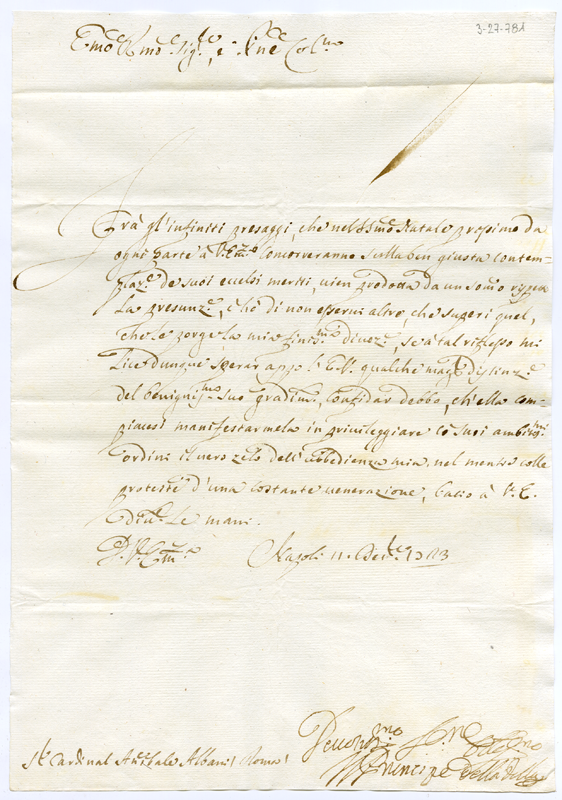 3-27-781
Emo e Rmo Sig.re, e Pne Col.mo
Frà gl'infiniti presaggi, che nel SSmo Natale prossimo da
ogni parte à V. Em.za concorreranno sulla ben giusta contem-
plaz.e de suoi eccelsi meriti, vien prodotta da un som.o
la presunz.e, c'hò di non esservi altro che superi quel,
che le porge la mia divoz.e; se à tal riflesso mi
lice dunque sperar app.o l'E.V. qualche mag.r distinz.e
del benignis.mo suo gradim.to, confidar debbo, ch'ella com-
piacesi manifestarmela in privileggiare co' suoi ambitis.mi
ordini il vero zelo dell'ubbedienza mia: nel mentre colle
proteste d'una costante venerazione, bacio à V. E.
le mani.
D. V. Em.za
Napoli 11. Dec.bre
Devotis.mo
Principe della
Sr. Cardinal Annibale Albani Roma